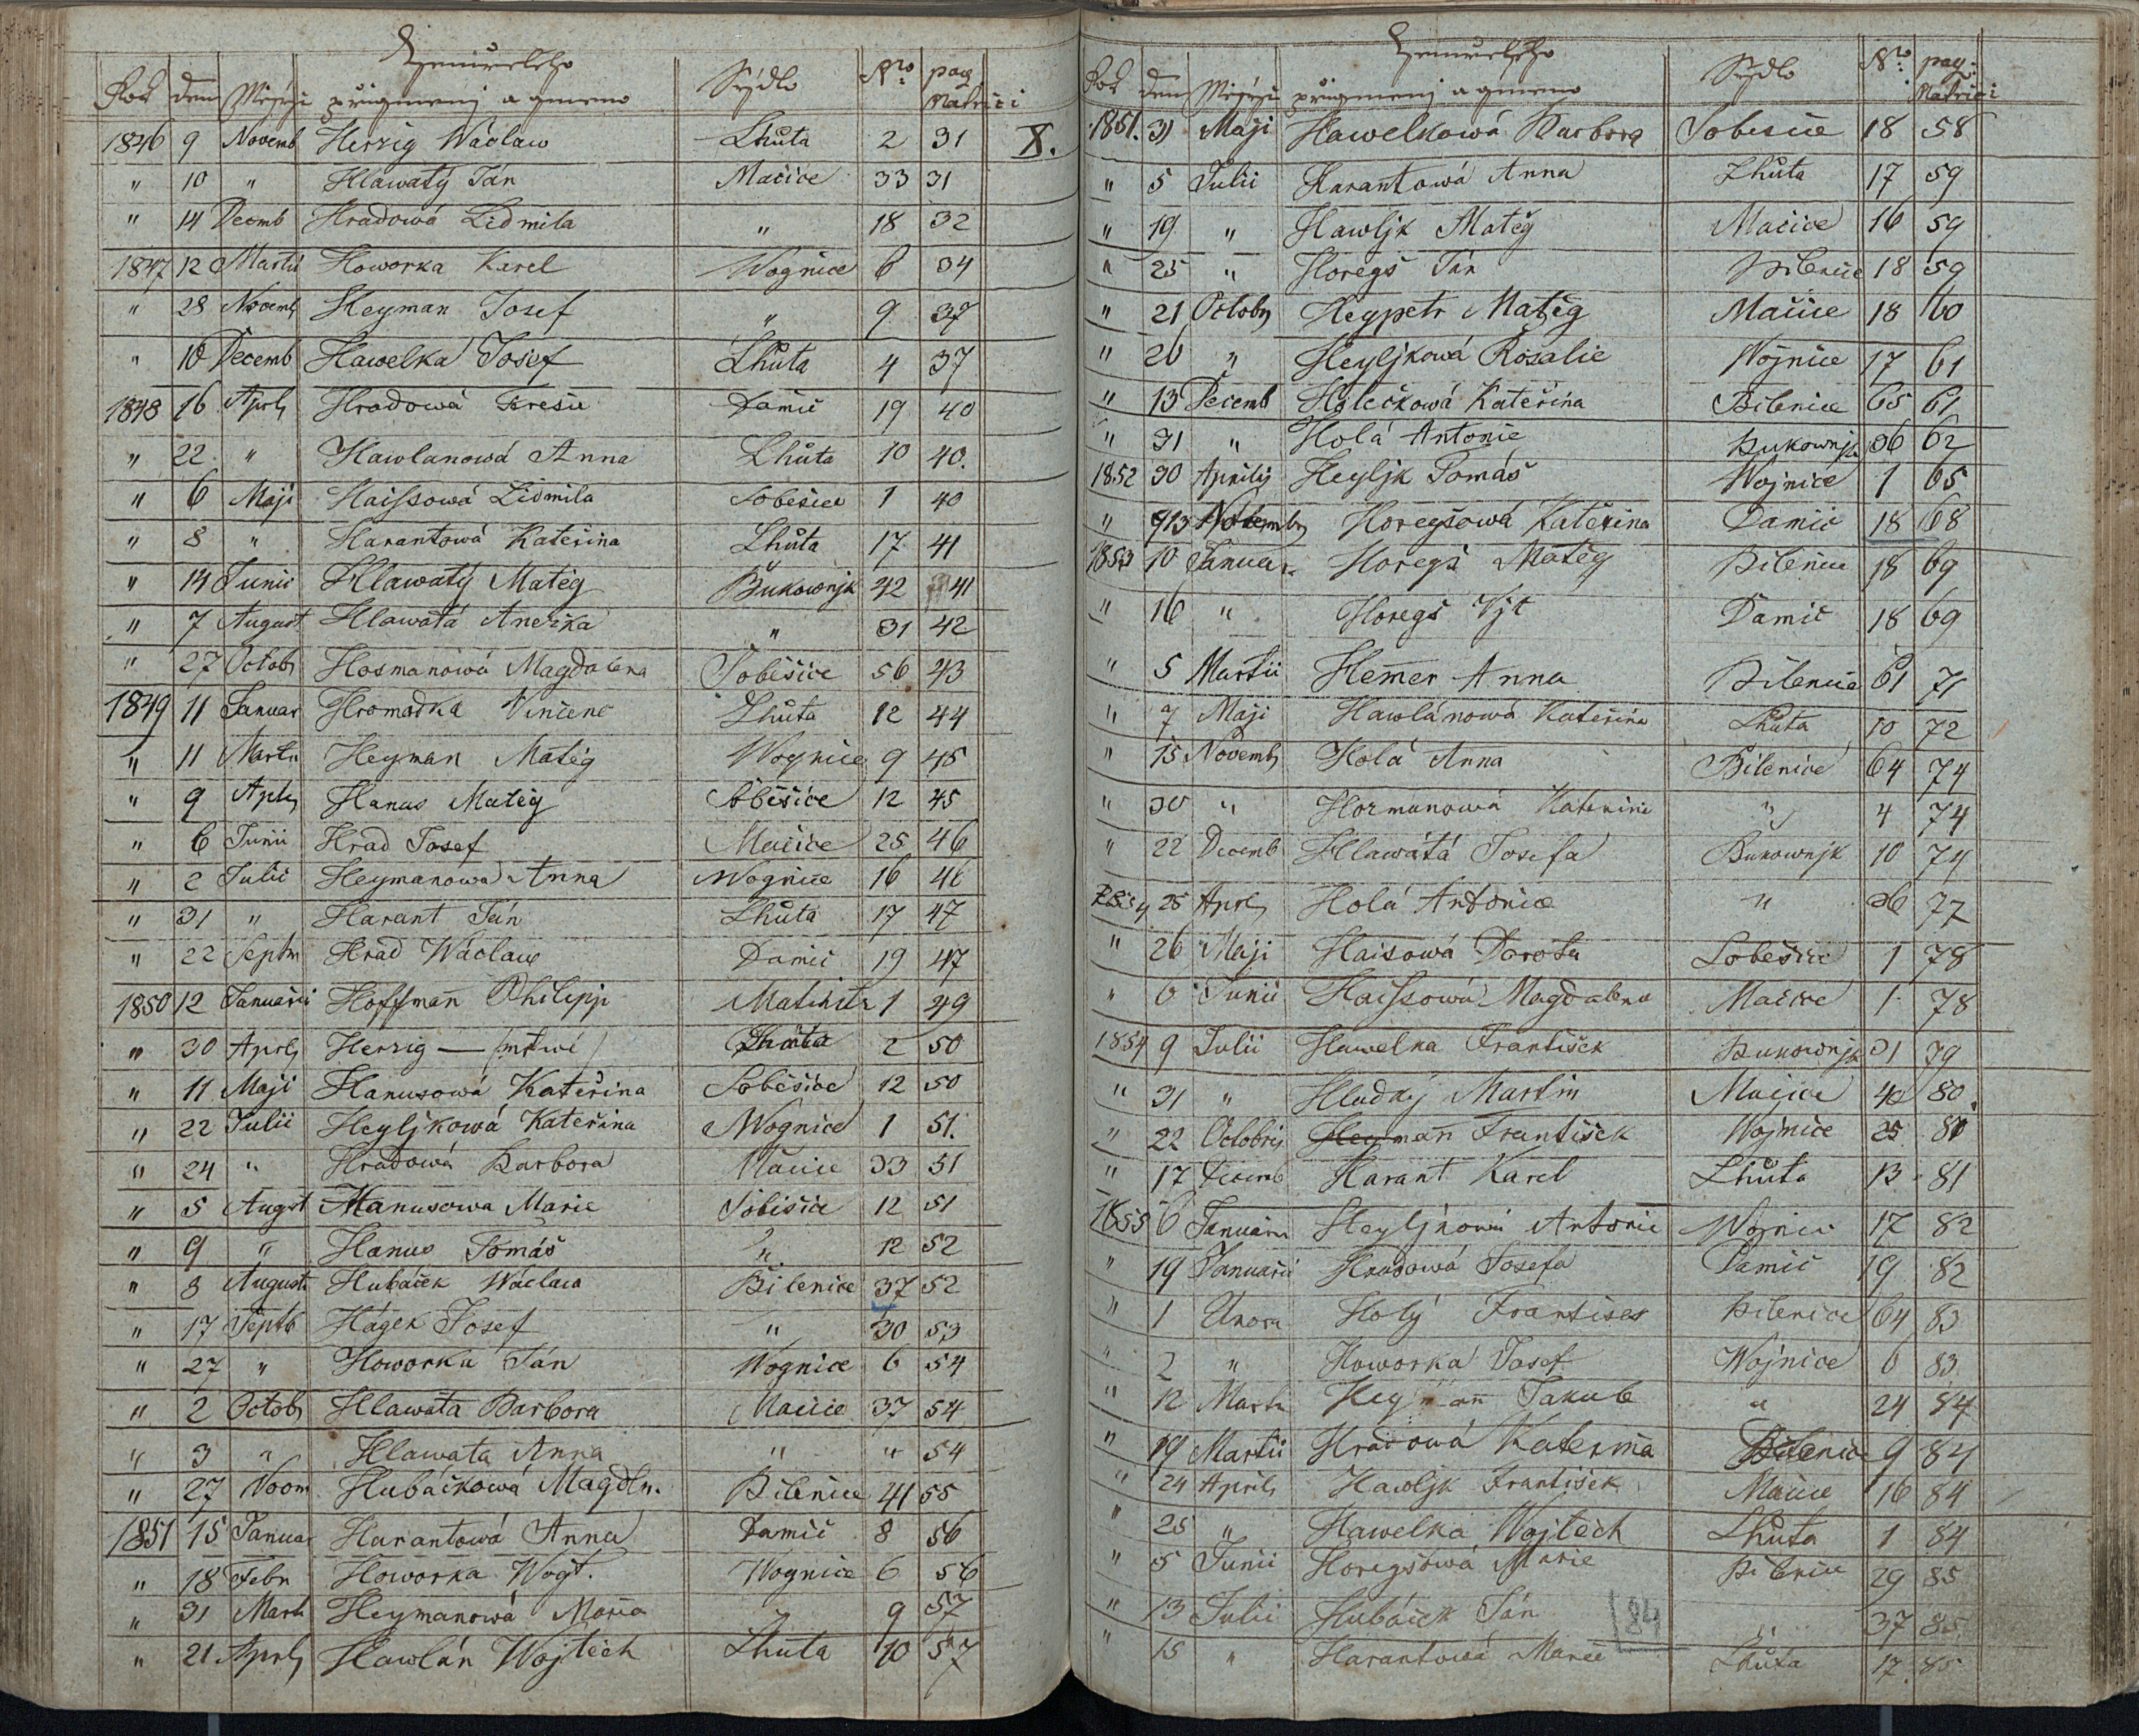 Zemřelého
Rok den Měsýc přigmenj a gmeno Sýdlo Nro pag. Matrici
1846 9 Novemb Herzig Wáclaw Lhůta 2 31 X.
" 10 " Hlawatý Ján Mačice 33 31
" 14 Decmb Hradowá Lidmila " 18 32
1847 12 Martii Howorka Karel Wognice 6 34
" 28 Novemb Heyman Josef " 9 37
" 10 Decemb Hawelka Josef Lhůta 4 37
1848 16 Aprl Hradowá Teresie Damič 19 40
" 22 " Hawlanowá Anna Lhůta 10 40.
" 6 Maji Haissowá Lidmila Soběsice 1 40
" 8 " Harantowá Kateřina Lhůta 17 41
" 14 Junii Hlawatý Matěg Bukownjk 42 41
" 7 August Hlawatá Anežka " 31 42
" 27 Octob Hosmanowá Magdalena Soběšice 56 43
1849 11 Januar Hromadka Vincenc Lhůta 12 44
" 11 Martii Heyman Matěg Wognice 9 45
" 9 Apl Hanus Matěg Soběšice 12 45
" 6 Junii Hrad Josef Mačice 25 46
" 2 Julii Heymanowá Anna Wognice 16 46
" 31 " Harant Ján Lhůta 17 47
" 22 Septm Hrad Wáclaw Damič 19 47
1850 12 Januarii Hoffman̄ Philipp 1 49
" 30 Aprl Herzig — (mrtwé) Lhůta 2 50
" 11 Maji Hanusowá Kateřina Soběšice 12 50
" 22 Julii Heyljkowá Kateřina Wognice 1 51.
" 24 " Hradowá Barbora Mačice 33 51
" 5 Augst Hanusowa Marie Soběšice 12 51
" 9 " Hanus Tomáš " 12 52
" 8 August Hubáček Wáclaw Bílenice 37 52
" 17 Septb Hágek Josef " 30 53
" 27 " Howorka Ján Wognice 6 54
" 2 Octob Hlawata Barbora Mačice 37 54
" 3 " Hlawata Anna " " 54
" 27 Novm Hubáčkowá Magdln. Bílenice 41 55
1851 15 Januar Harantowá Anna Damič 8 56
" 18 Febr Howorka Wogt. Wognice 6 56
" 31 Marti Heymanowá Maria " 9 57
" 21 Aprl Hawlán Wojtěch Lhůta 10 57
Zemřelého
Rok den Měsýc přigmenj a gmeno Sýdlo Nro pag. Matrici
1851. 31 Maji Hawelkowá Barbora Sobesice 18 58
" 5 Julii Harantowá Anna Lhůta 17 59
" 19 " Hawljk Matěg Mačice 16 59
" 25 " Horegš Ján Bílenice 18 59
" 21 Octob Heypetr Matěg Mačice 18 60
" 26 " Heyljkowá Rosalie Wojnice 17 61
" 13 Decemb Holečkowá Kateřina Bílenice 65 61
" 31 " Holá Antonie Bukownjk 36 62
1852 30 Aprilis Heyljk Tomáš Wojnice 1 65
" 13 Novembr Horegšowá Kateřina Damič 18 68
1853 10 Januar Horegš Matěg Bílenice 18 69
" 16 " Horegš Vjt Damič 18 69
" 5 Martii Hemer Anna Bílenice 61 71
" 7 Maji Hawlánowá Kateřina Lhuta 10 72
" 15 Novemb Holá Anna Bílenice 64 74
" 30 " Hormanowá Kateřina " 4 74
" 22 Decemb Hlawatá Josefa Bukownjk 10 74
1854 25 Aprl Holá Antonie " 36 77
" 26 Maji Haisowá Dorota Soběšice 1 78
" 6 Junii Haissowá Magdalena Mačice 1 78
1854 9 Julii Hawelka František Bukownjk 31 79
" 31 " Hludký Martin Mačice 40 80
" 22 Octobris Heyman̄ František Wojnice 25 80
" 17 Decemb Harant Karel Lhůta 13 81
1855 6 Januar Heyljkowá Antonie Wojnice 17 82
" 19 Januarii Hradowá Josefa Damič 19 82
" 1 Unora Holý František Bílenice 64 83
" 2 " Howorka Josef Wojnice 6 83
" 12 Marti Heyman̄ Jakub " 24 84
" 19 Martii Hradowá Kateřina Bílenice 9 84
" 24 April Hawljk František Mačice 16 84
" 25 " Hawelka Wojtěch Lhůta 1 84
" 5 Junii Horegšowá Marie Bílenice 29 85
" 13 Julii Hubáček Ján " 37 85
" 15 " Harantowá Marie Lhůta 17 85
84